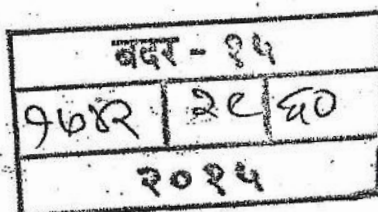 बदर - १५
१७४२ २८ ६०
२०१५